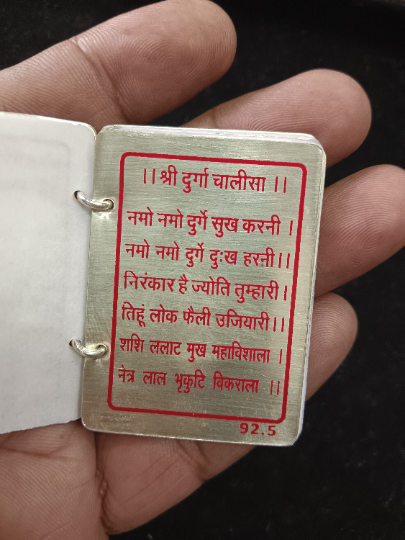 ।।श्री दुर्गा चालीसा ।।
नमो नमो दुर्गे सुख करनी ।
नमो नमो दुर्गे दुःख हरनी।।
निरंकार है ज्योति तुम्हारी।
तिहूं लोक फैली उजियारी।।
शशि ललाट मुख महाविशाला ।
नेत्र लाल भृकुटि विकराला ।।
92.5